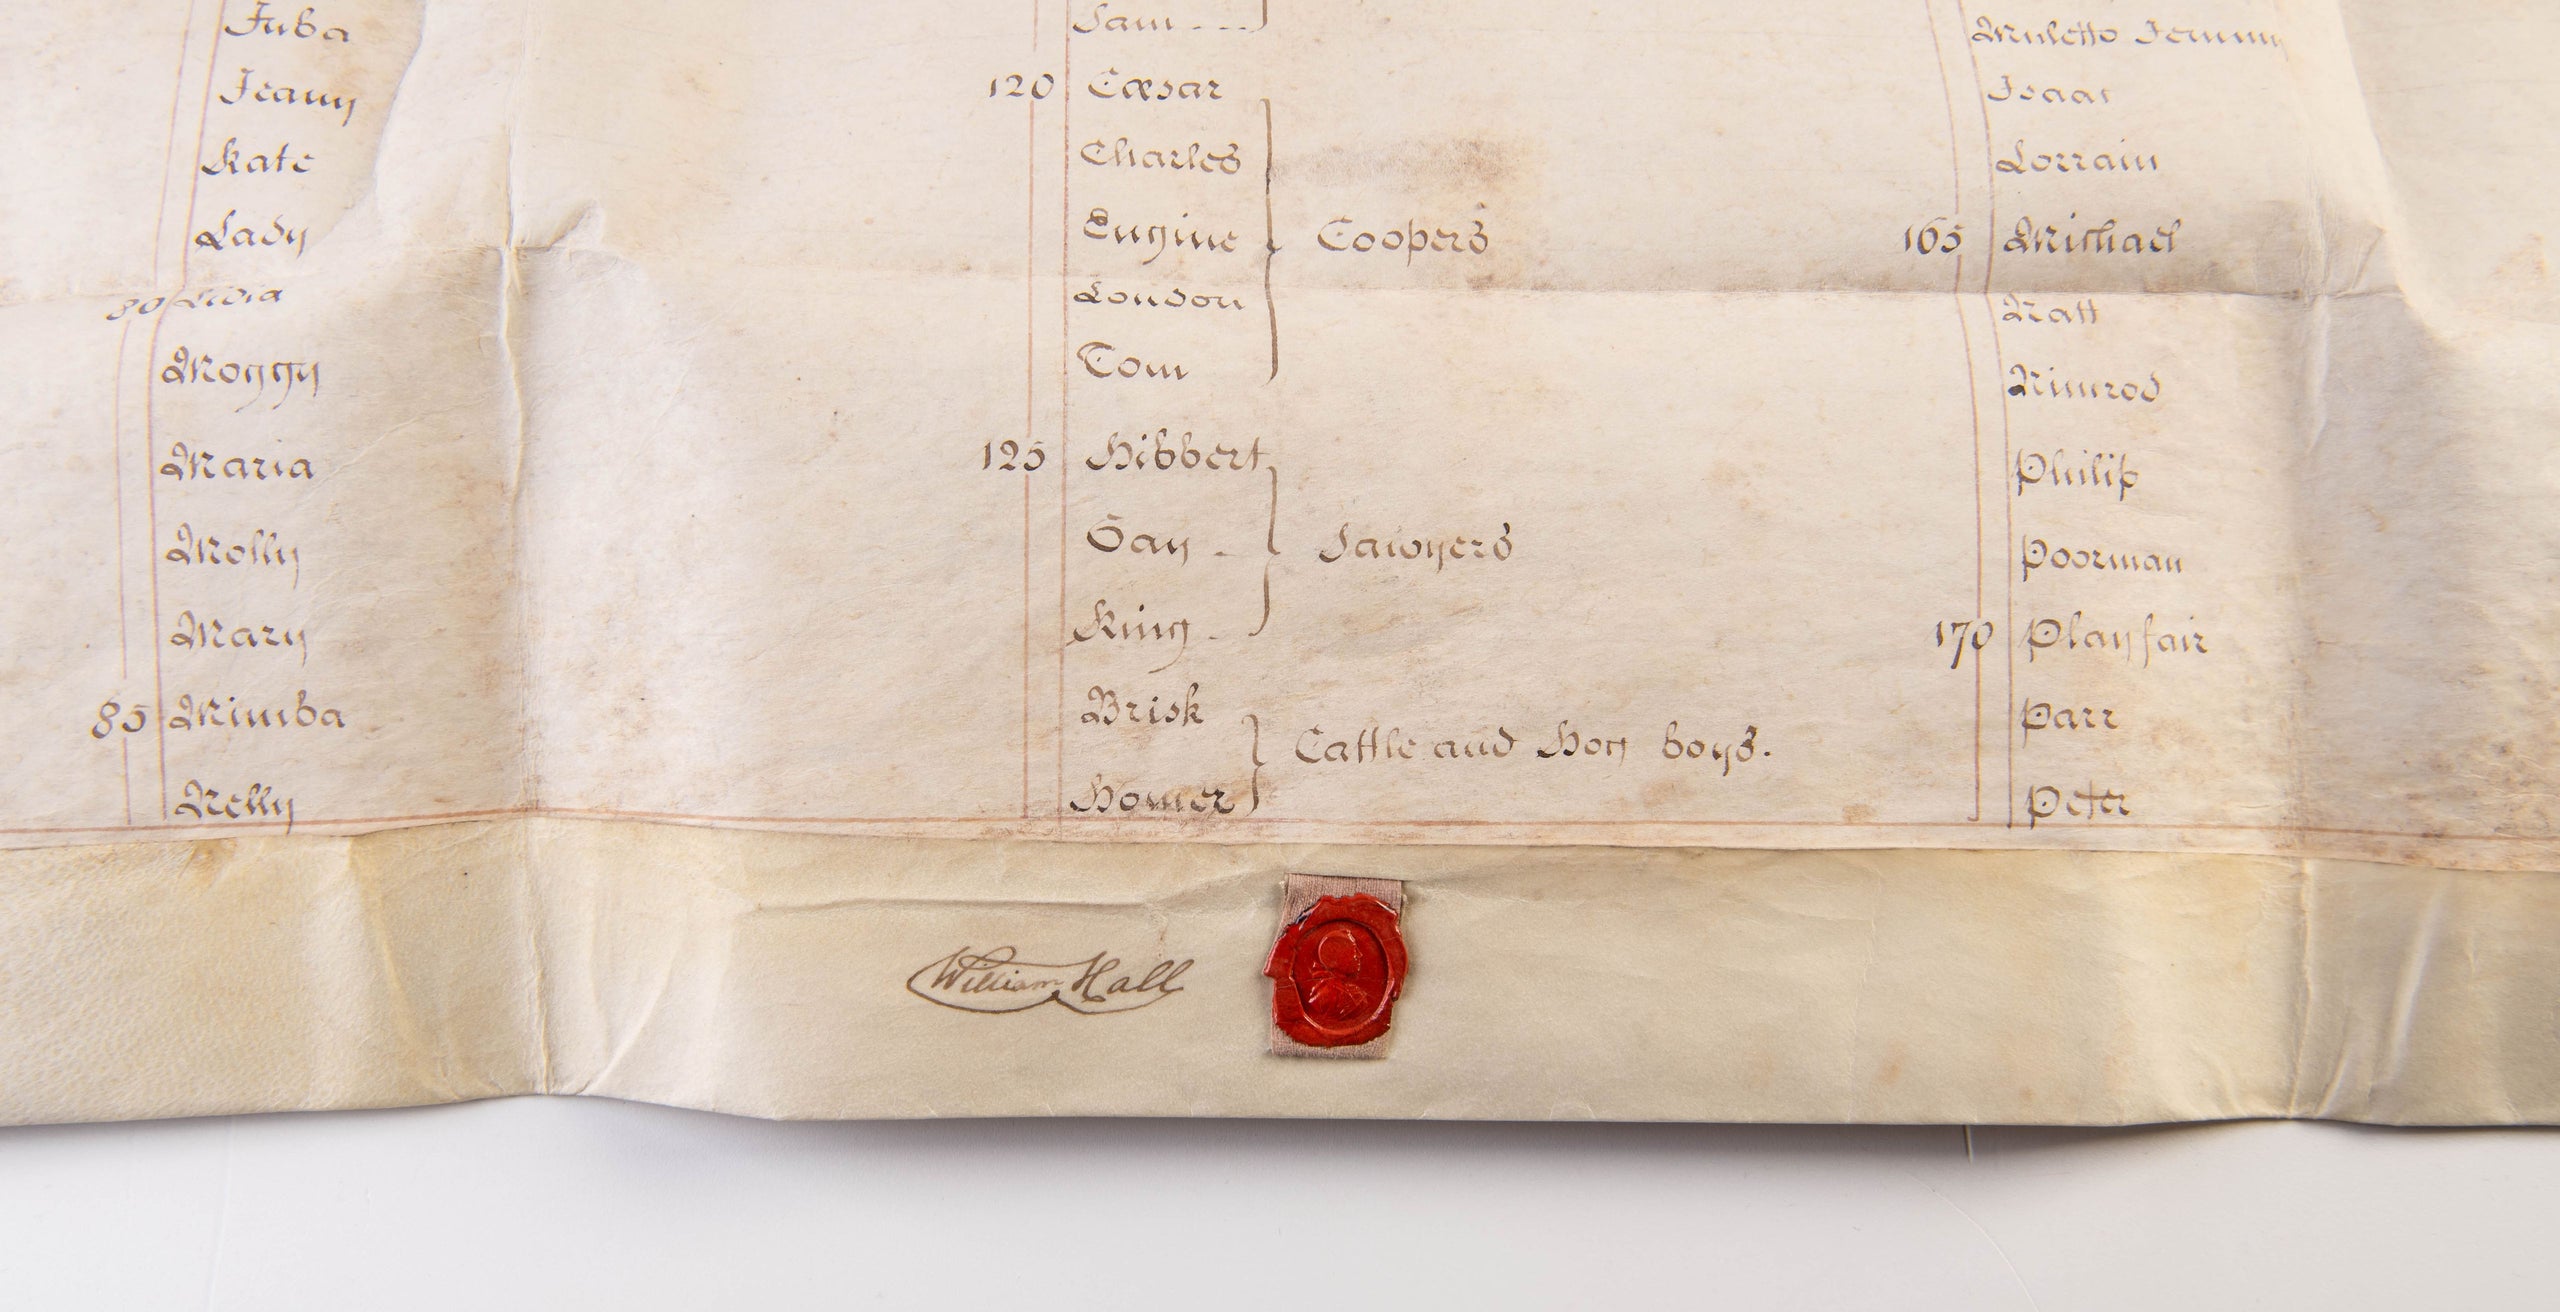 Juba
Jeany
Kate
Lady
80 Livia
Moggy
Maria
Molly
Mary
85 Mimba
Nelly
Sam
120 Cæsar
Charles
Engine
London
Tom
Coopers
125 Hibbert
Gay
King
Sawyers
Brisk
Homer
Cattle and Hog boys.
Muletto Jemmy
Isaac
Lorrain
165 Michael
Natt
Nimrod
Philip
Poorman
170 Playfair
Parr
Peter
William Hall